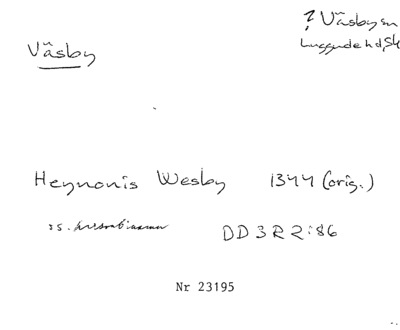 ? Väsby sn
Luggude hd, Sk
Väsby
Heynonis Wesby 1344 (orig.)
DD 3 R 2:86
Nr 23195